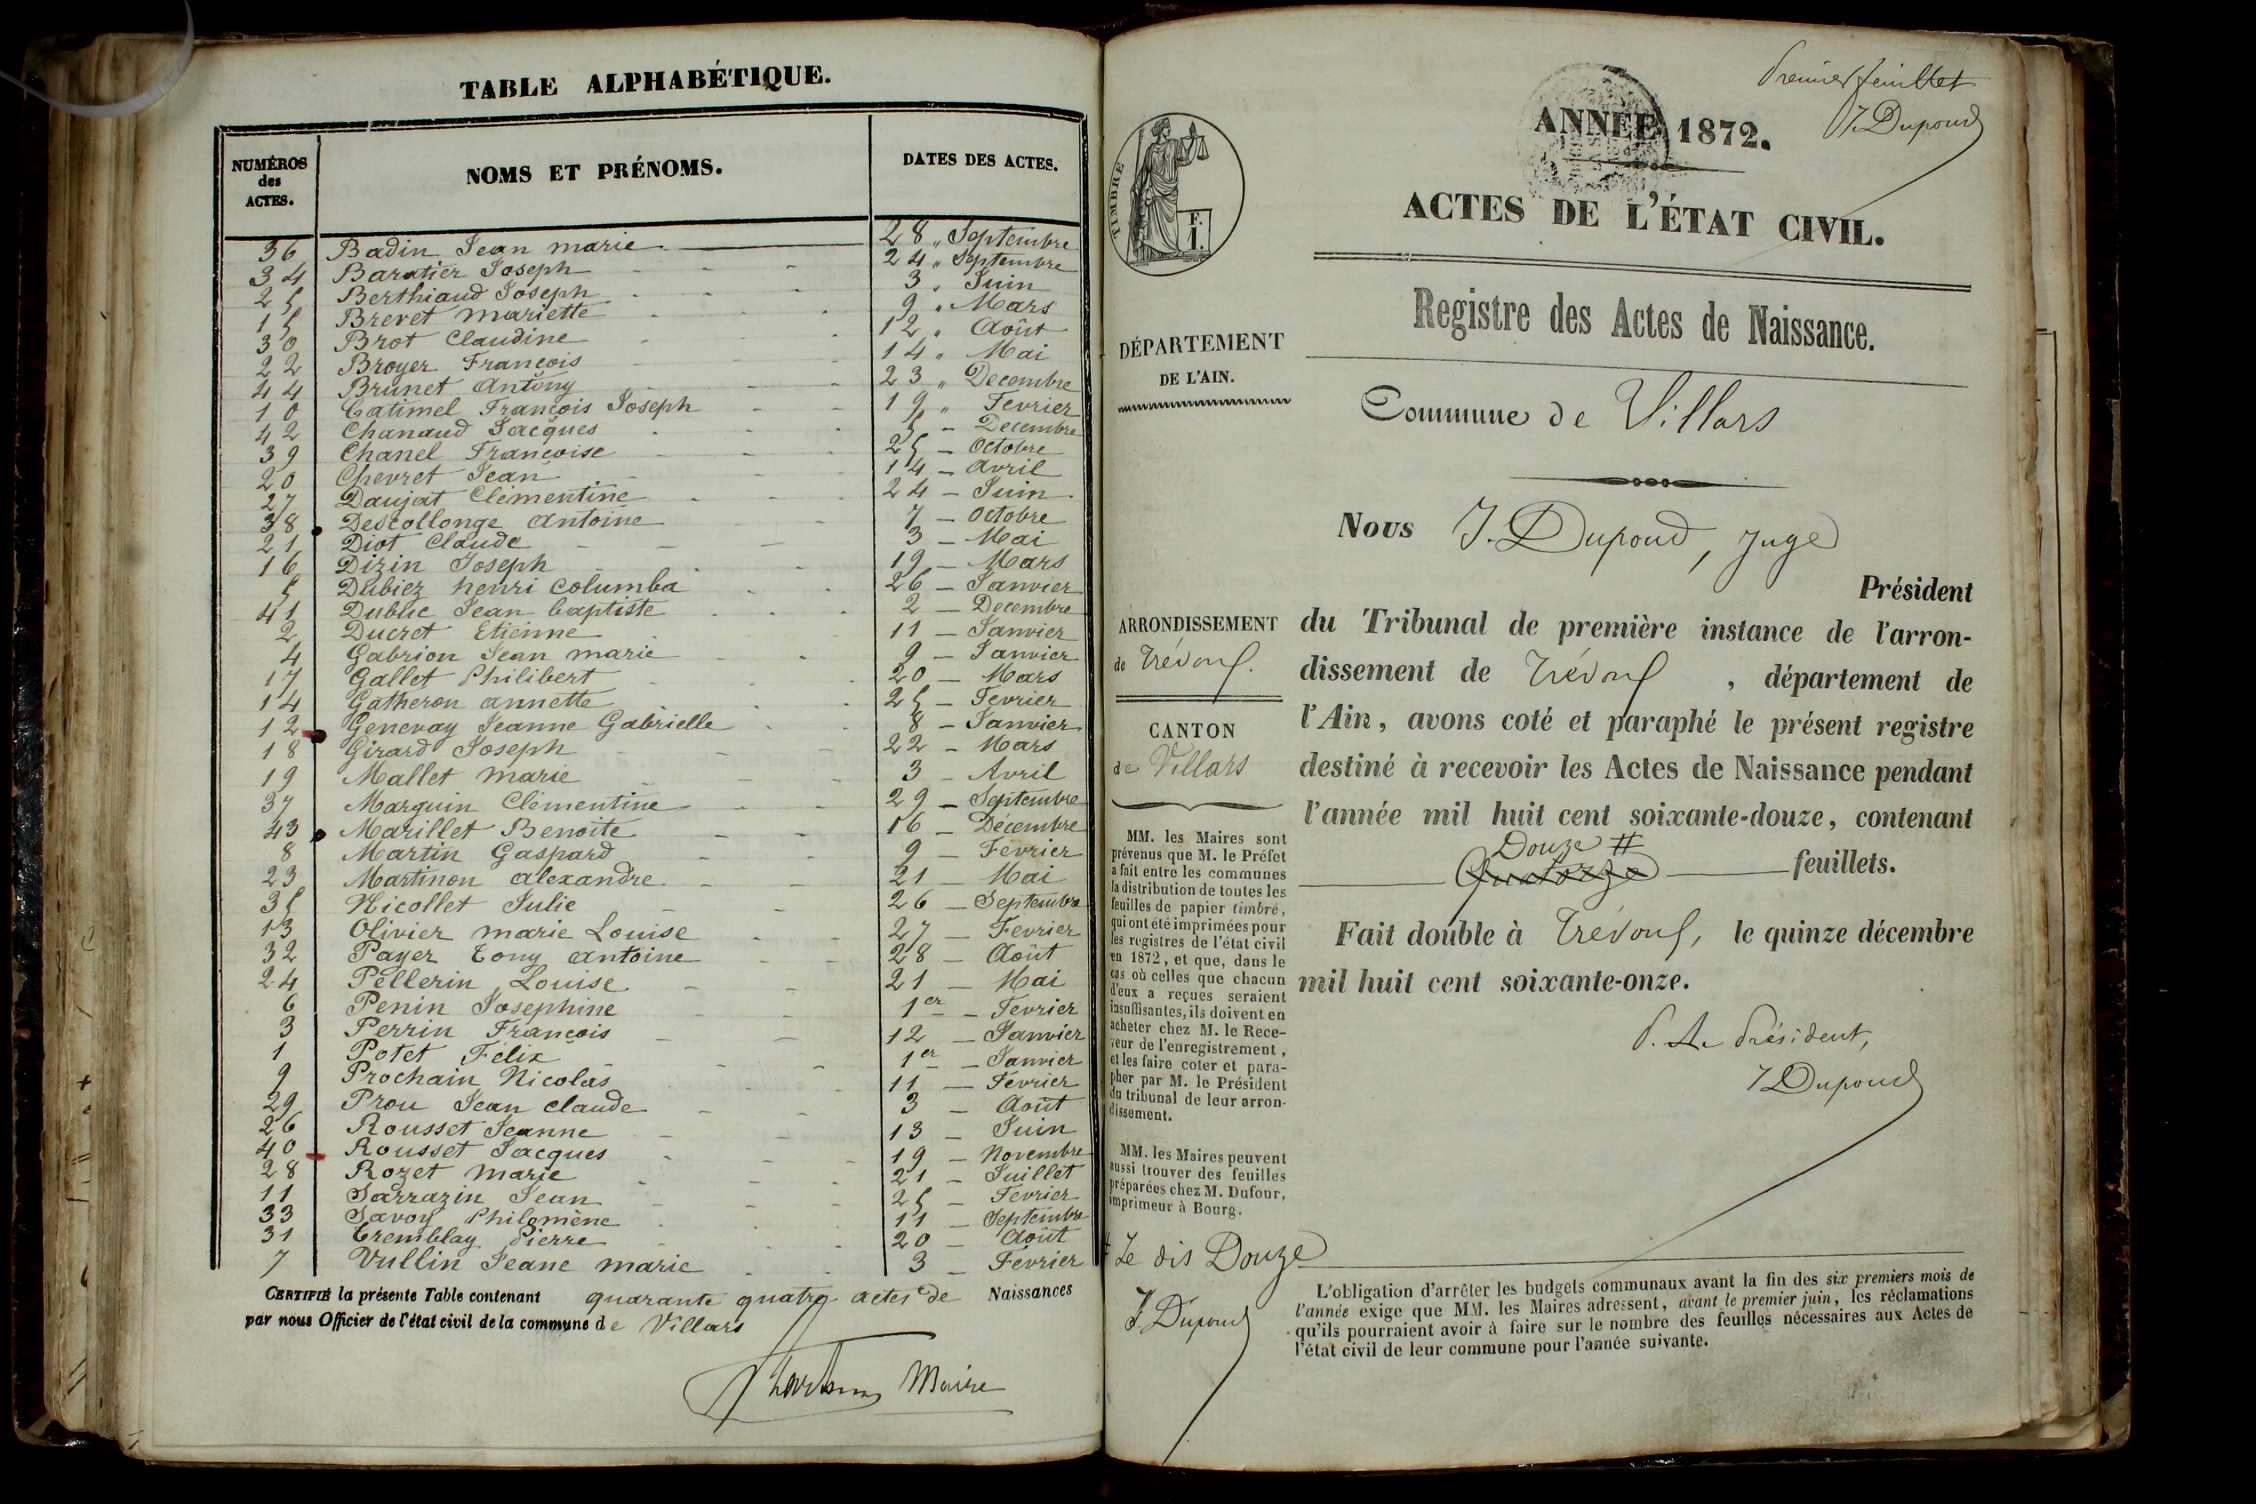 TABLE ALPHABÉTIQUE.
NUMÉROS des ACTES. NOMS ET PRÉNOMS. DATES DES ACTES.
36 Badin Jean marie 28 „ Septembre
34 Baratier Joseph 24 „ Septembre
25 Berthiaud Joseph 3 „ Juin
15 Brevet mariette 9 „ Mars
30 Brot Claudine 12 „ Août
22 Broyer François 14 „ Mai
44 Brunet Antony 23 „ Decembre
10 Catimel François Joseph 19 „ Fevrier
42 Chanaud Jacques 5 – Decembre
39 Chanel Françoise 25 – Octobre
20 Chevret Jean 14 – avril
27 Daujat Clémentine 24 – Juin
38 Descollonge Antoine 7 – Octobre
21 Diot Claude 3 – Mai
16 Dizin Joseph 19 – Mars
5 Dubiez henri Columba 26 – Janvier
41 Dubuc Jean baptiste 2 – Decembre
2 Ducret Etienne 11 – Janvier
4 Gabrion Jean marie 9 – Janvier
17 Gallet Philibert 20 – Mars
14 Gatheron annette 25 – Fevrier
12 Genevay Jeanne Gabrielle 8 – Janvier
18 Girard Joseph 22 – Mars
19 Mallet marie 3 – Avril
37 Marguin Clémentine 29 – Septembre
43 Marillet Benoite 16 – Décembre
8 Martin Gaspard 9 – Février
23 Martinon alexandre 21 – Mai
35 Nicollet Julie 26 – Septembre
13 Olivier marie Louise 27 – Fevrier
32 Payer Tony antoine 28 – Août
24 Pellerin Louise 21 – Mai
6 Penin Josephine 1er – Fevrier
3 Perrin François 12 – Janvier
1 Potet Félix 1er – Janvier
9 Prochain Nicolas 11 – Février
29 Prou Jean claude 3 – Août
26 Rousset Jeanne 13 – Juin
40 Rousset Jacques 19 – Novembre
28 Rozet marie 21 – Juillet
11 Sarrazin Jean 25 – Fevrier
33 Savoy Philomène 11 – Septembre
31 Tremblay Pierre 20 – Août
7 Vullin Jeane marie 3 – Fevrier
CERTIFIÉ la présente Table contenant quarante quatre actes de Naissances
par nous Officier de l'état civil de la commune de Villars
Maire
Premier feuillet
J. Dupoud
ANNÉE 1872.
ACTES DE L'ÉTAT CIVIL.
TIMBRE
F.
1.
Registre des Actes de Naissance.
DÉPARTEMENT
DE L'AIN.
Commune de Villars
Nous J. Dupoud, Juge
Président
du Tribunal de première instance de l'arron-
dissement de Trévoux, département de
l'Ain, avons coté et paraphé le présent registre
destiné à recevoir les Actes de Naissance pendant
l'année mil huit cent soixante-douze, contenant
Douze #
Quatorze feuillets.
Fait double à Trévoux, le quinze décembre
mil huit cent soixante-onze.
P. Le Président,
J Dupoud
ARRONDISSEMENT
de Trévoux.
CANTON
de Villars
MM. les Maires sont
prévenus que M. le Préfet
a fait entre les communes
la distribution de toutes les
feuilles de papier timbré,
qui ont été imprimées pour
les registres de l'état civil
en 1872, et que, dans le
cas où celles que chacun
d'eux a reçues seraient
insuffisantes, ils doivent en
acheter chez M. le Rece-
veur de l'enregistrement,
et les faire coter et para-
pher par M. le Président
du tribunal de leur arron-
dissement.
MM. les Maires peuvent
aussi trouver des feuilles
préparées chez M. Dufour,
imprimeur à Bourg.
# Je dis Douze
J. Dupoud
L'obligation d'arrêter les budgets communaux avant la fin des six premiers mois de
l'année exige que MM. les Maires adressent, avant le premier juin, les réclamations
qu'ils pourraient avoir à faire sur le nombre des feuilles nécessaires aux Actes de
l'état civil de leur commune pour l'année suivante.